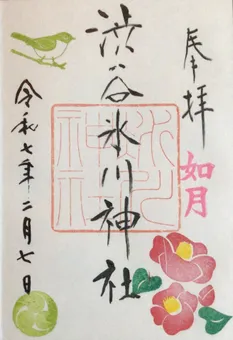 奉拝
如月
渋谷氷川神社
氷川神社
令和七年二月七日